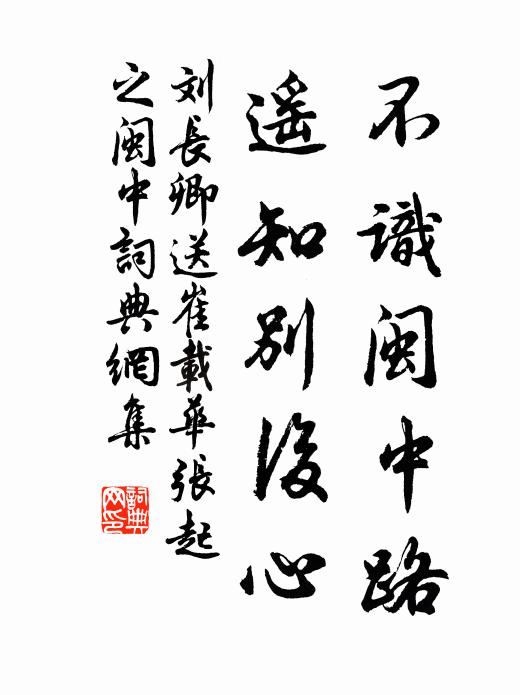 不識閩中路
遥知別後心
刘長卿送崔載華張起
之閩中詞典網集
詞典
网印